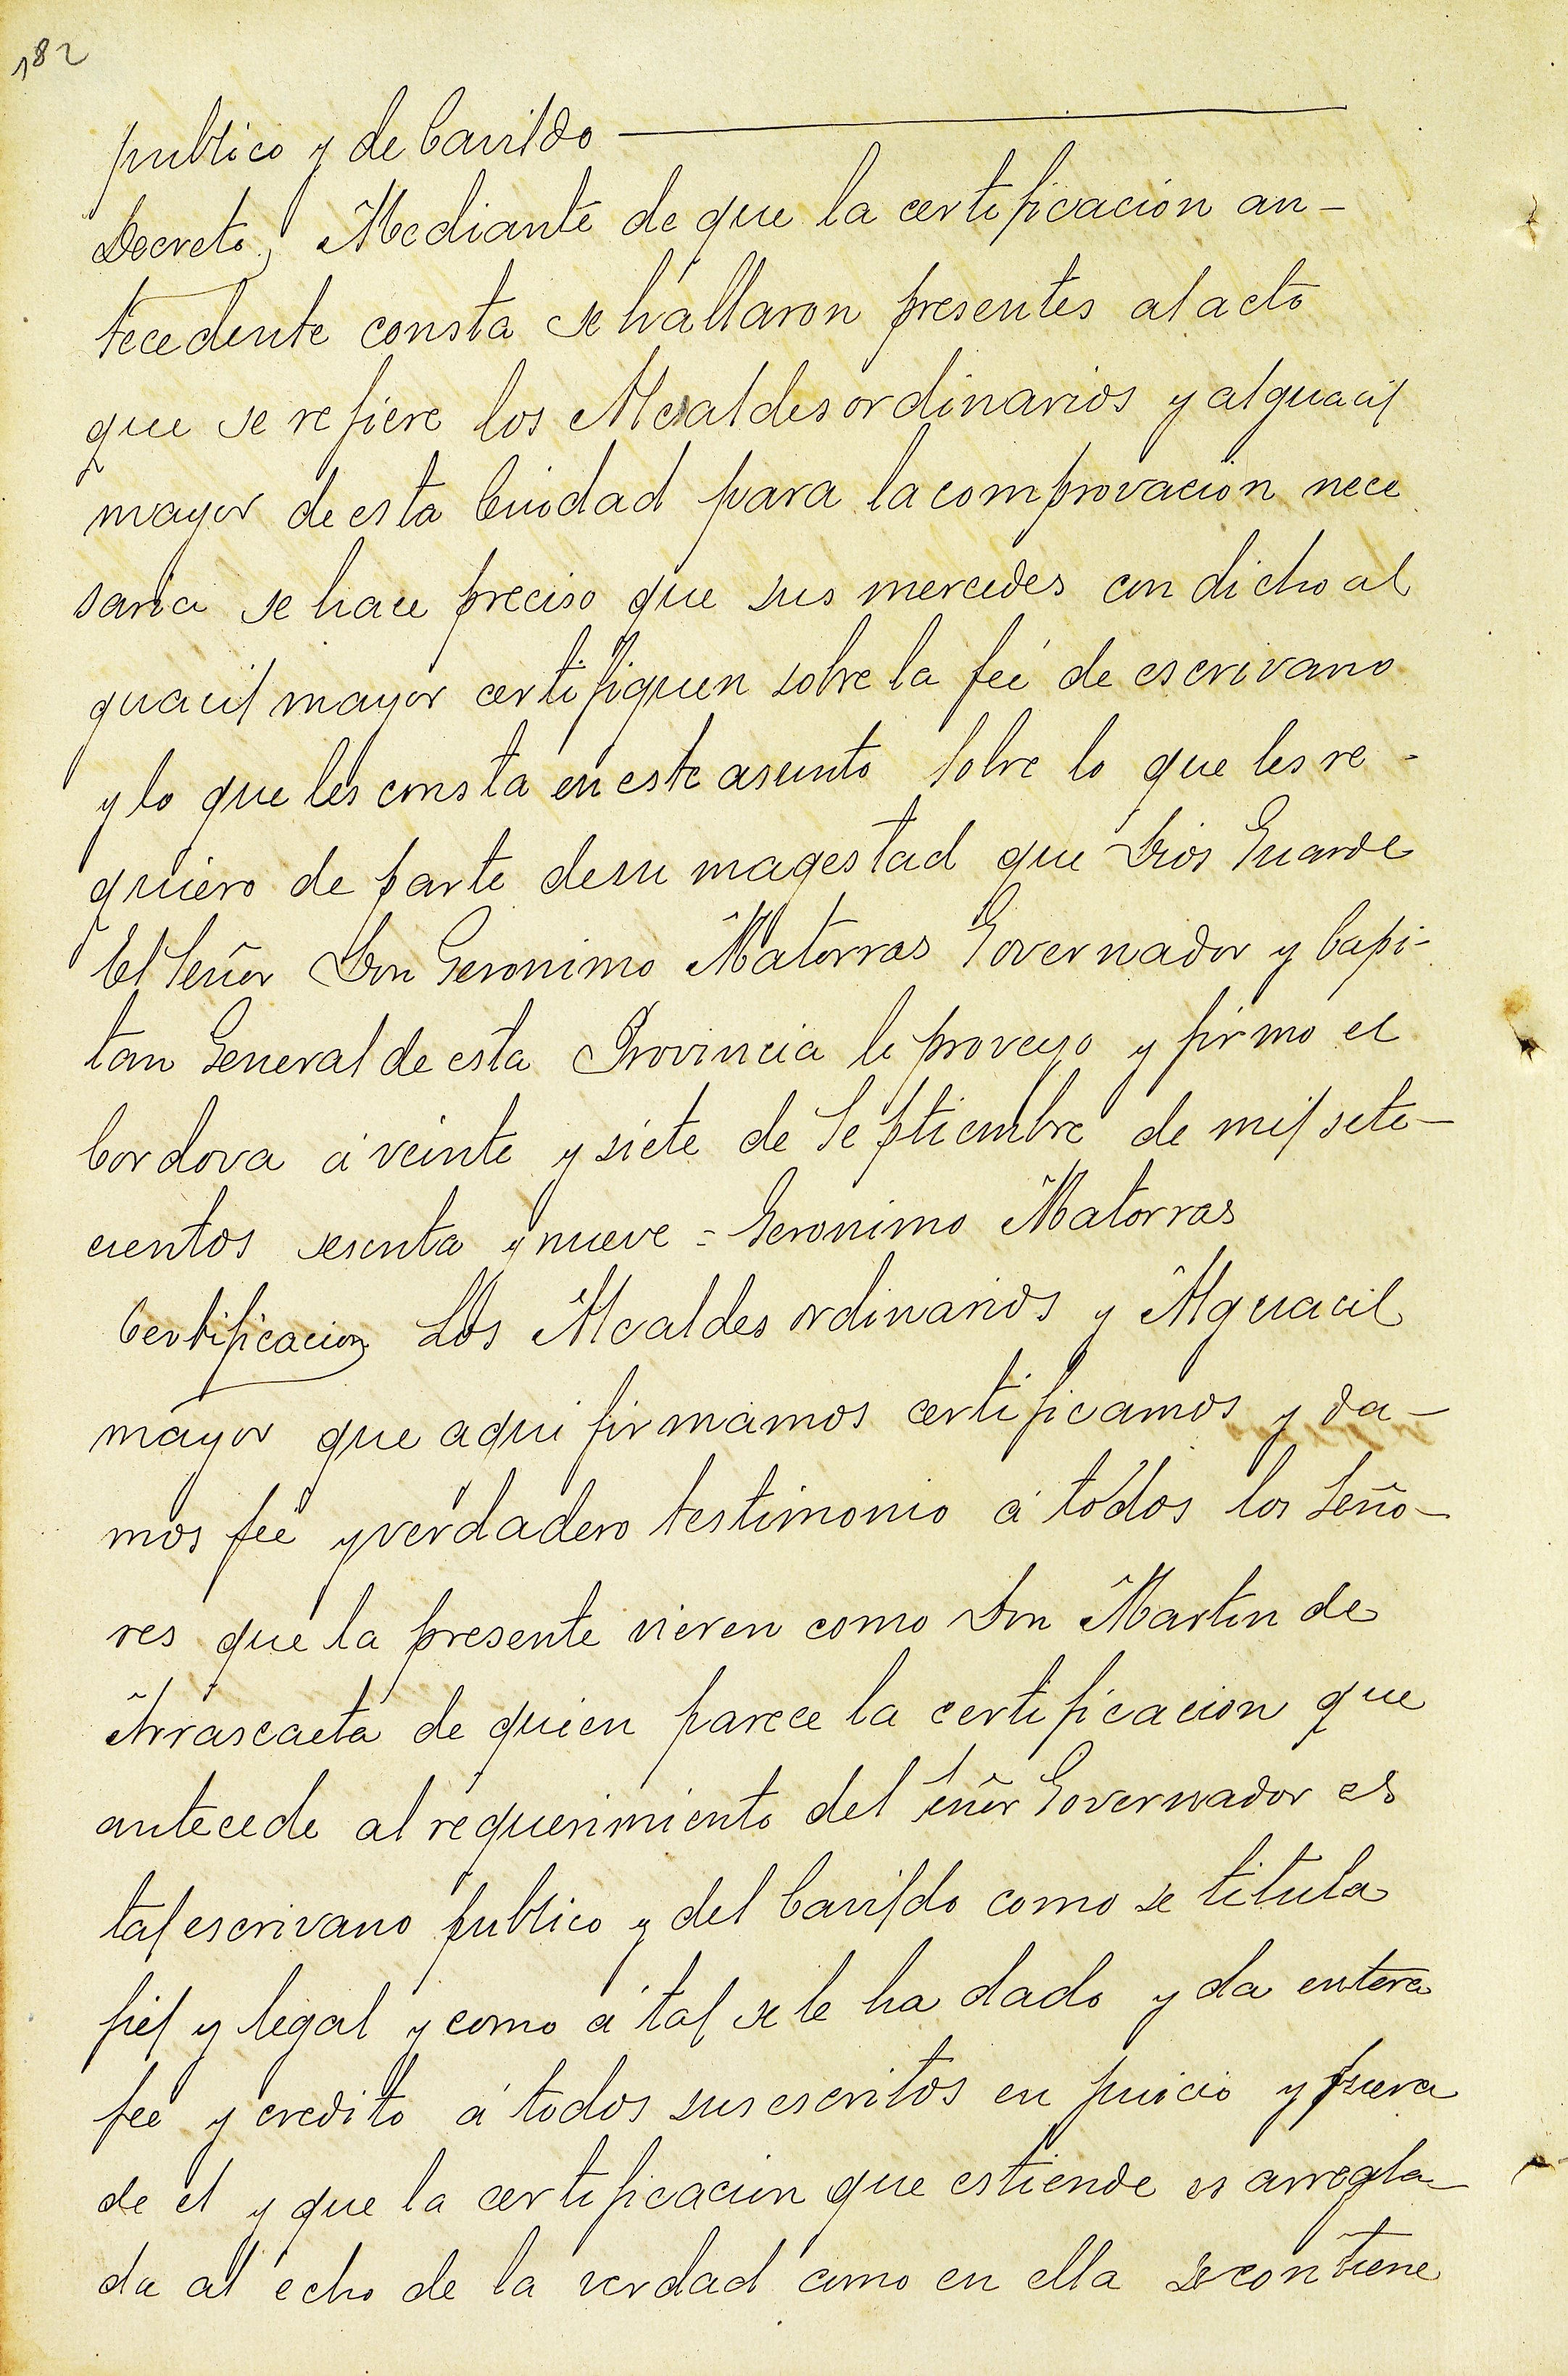 182
publico y de Cavildo
Decreto, Mediante de que la certificacion an-
tecedente consta se hallaron presentes al acto
que se refiere los Alcaldes ordinarios y alguacil
mayor de esta Ciudad para la comprovacion nece
saria se hace preciso que sus mercedes con dicho al
guacil mayor certifiquen sobre la feé de escrivano
y lo que les consta en este asunto Sobre lo que les re-
quiero de parte de su magestad que Dios Guarde
El Señor Don Geronimo Matorras Governador y Capi-
tan General de esta Provincia lo proveyo y firmo el
Cordova á veinte y siete de Septiembre de mil sete-
cientos sesenta y nueve = Geronimo Matorras
Certificacion Los Alcaldes ordinarios y Alguacil
mayor que aqui firmamos certificamos y da-
mos feé y verdadero testimonio á todos los Seño-
res que la presente vieren como Don Martin de
Arrascaeta de quien parece la certificacion que
antecede al requerimiento del Señor Governador es
tal escrivano publico y del Cavildo como se titula
fiel y legal y como á tal se le ha dado y da entera
feé y credito á todos sus escritos en juicio y fuera
de el y que la certificacion que estiende es arregla-
da al echo de la verdad como en ella se contiene